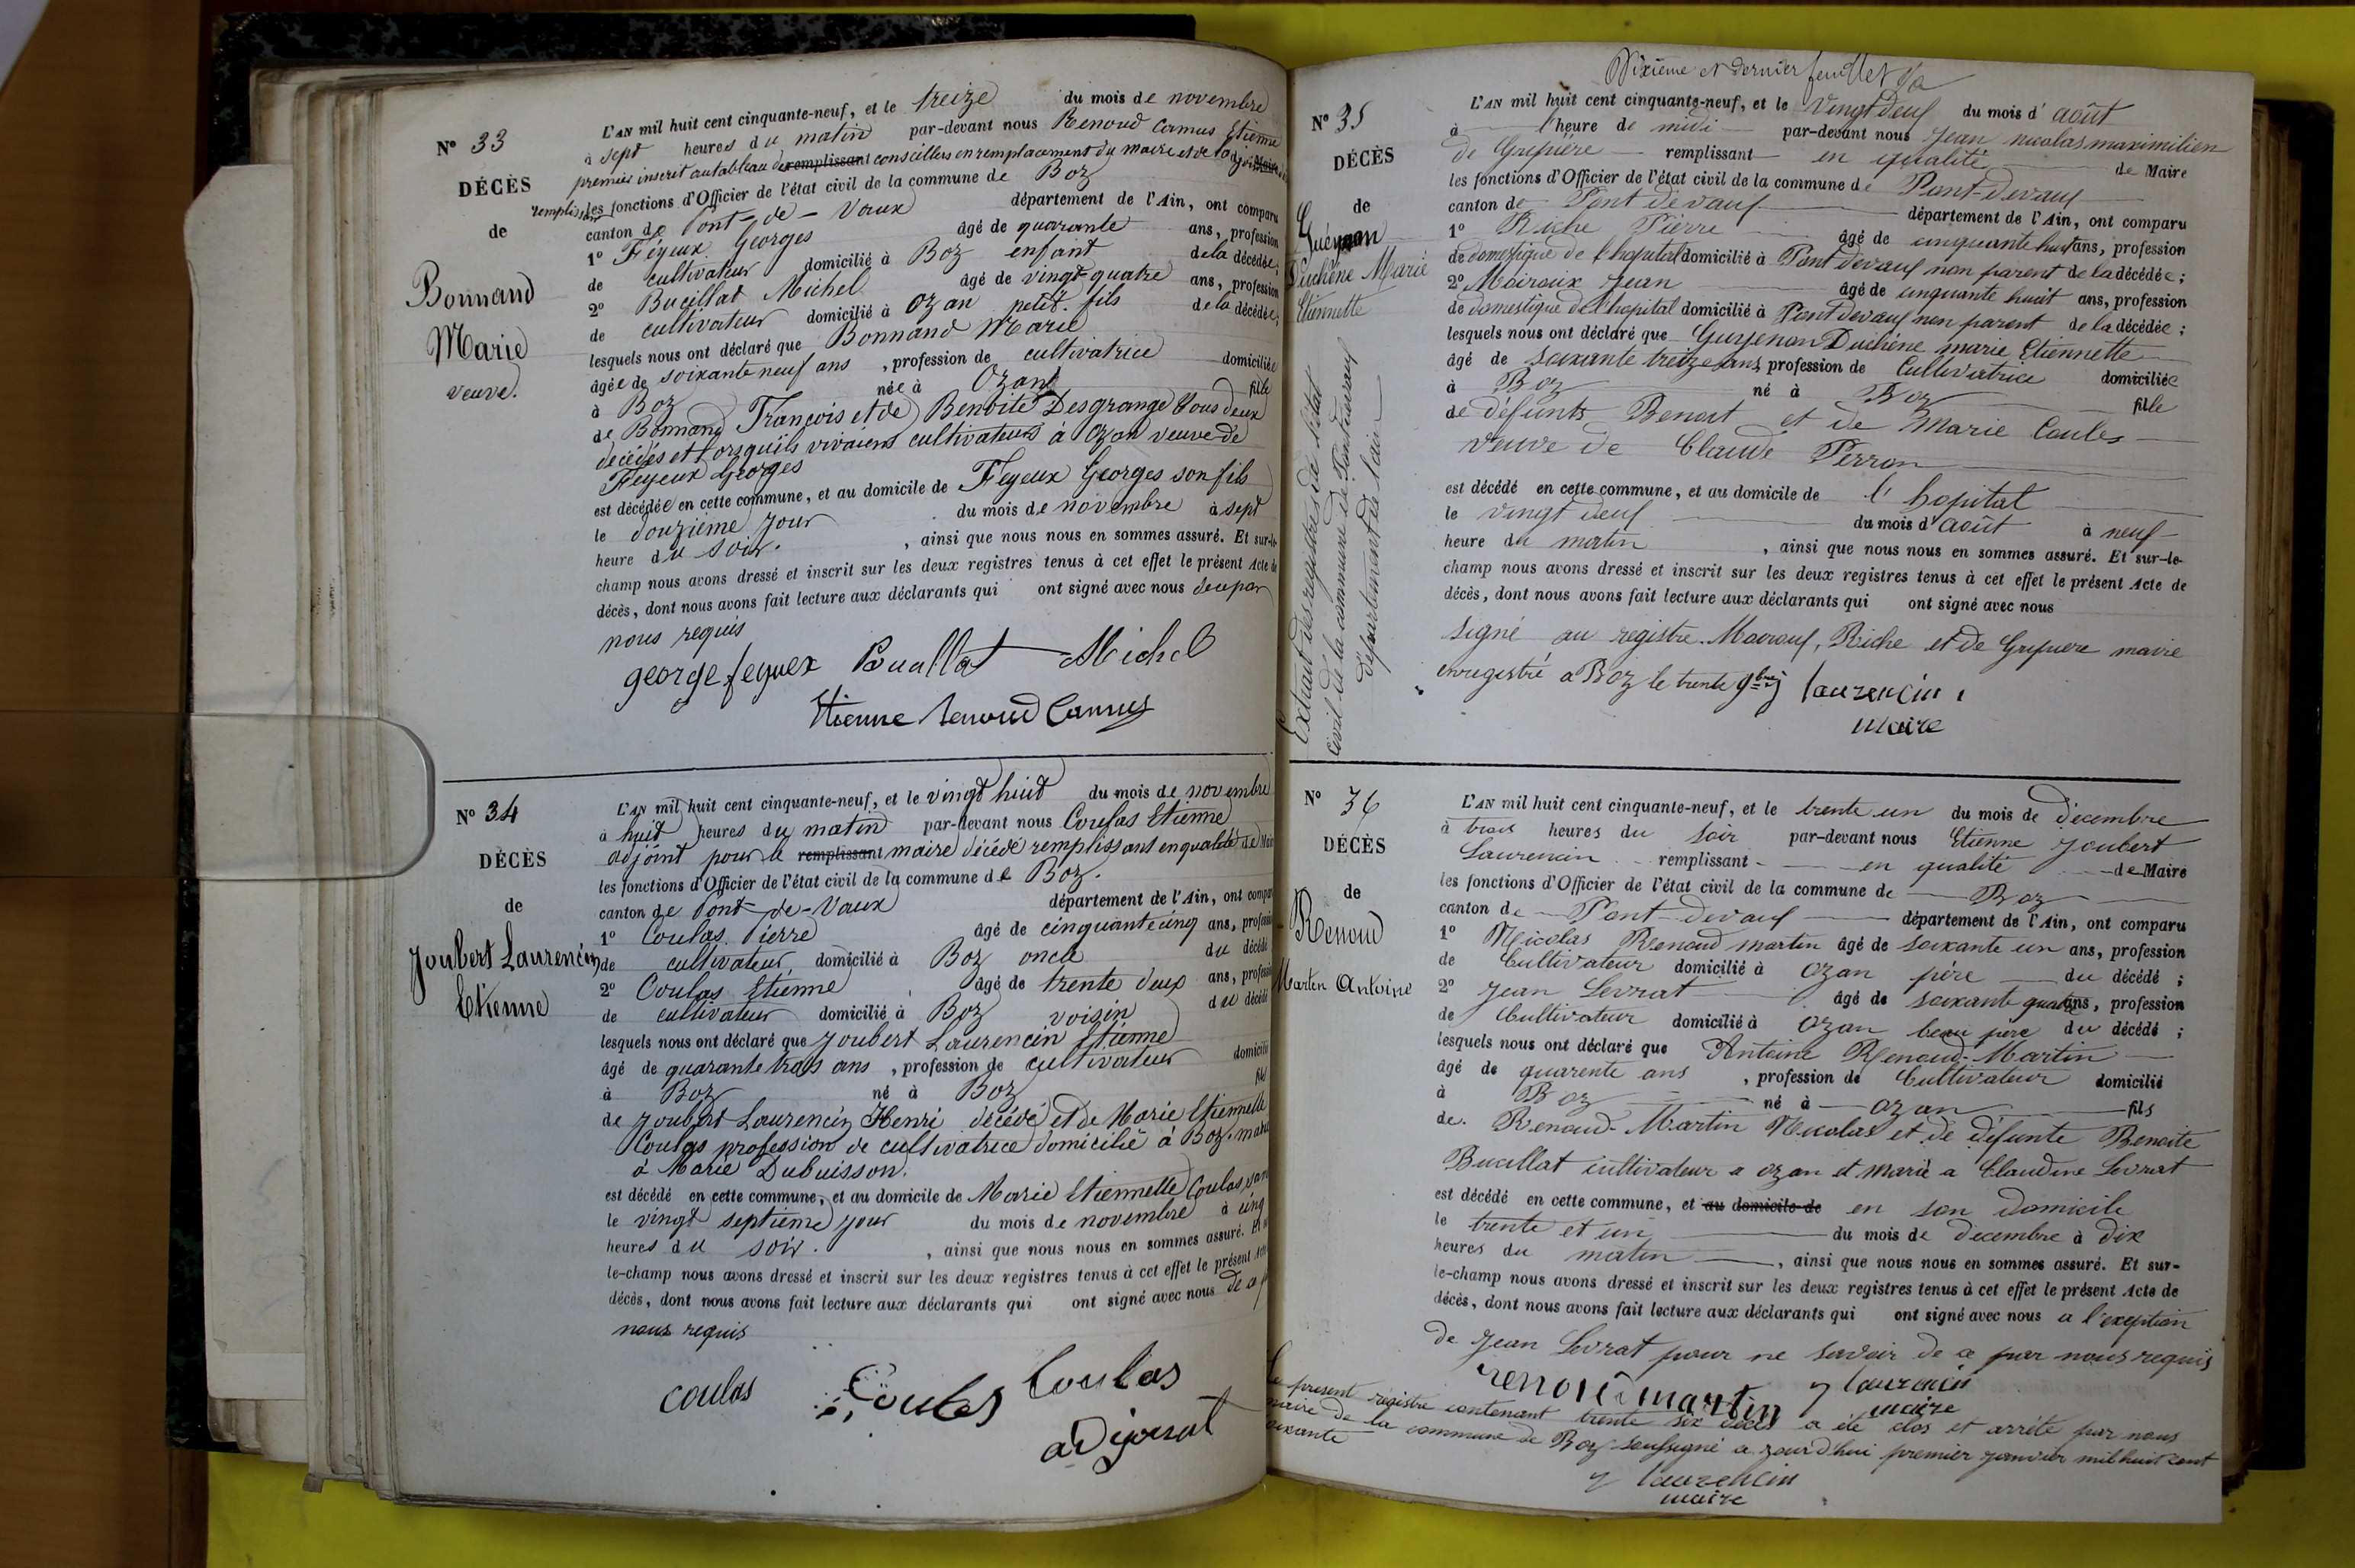 N° 33
DÉCÈS
de
Bonnand
Marie
veuve.
L'AN mil huit cent cinquante-neuf, et le treize du mois de novembre
à sept heures du matin par-devant nous Renoud Camus Etienne
premier inscrit au tableau des remplissant conseillers en remplacement du maire et de l'adjoint Maire
remplissant les fonctions d'Officier de l'état civil de la commune de Boz
canton de Pont-de-Vaux département de l'Ain, ont comparu
1° Feyeux Georges âgé de quarante ans, profession
de cultivateur domicilié à Boz enfant de la décédée;
2° Bucillat Michel âgé de vingt quatre ans, profession
de cultivateur domicilié à Ozan petit-fils de la décédée;
lesquels nous ont déclaré que Bonnand Marie
âgée de soixante neuf ans, profession de cultivatrice domiciliée
à Boz née à Ozan fille
de Bonnand François et de Benoite Desgrange tous deux
décédés et lorsqu'ils vivaient cultivateurs à Ozan veuve de
Feyeux Georges
est décédée en cette commune, et au domicile de Feyeux Georges son fils
le douzième jour du mois de novembre à sept
heure du soir. , ainsi que nous nous en sommes assuré. Et sur-le-
champ nous avons dressé et inscrit sur les deux registres tenus à cet effet le présent Acte de
décès, dont nous avons fait lecture aux déclarants qui ont signé avec nous de ce par
nous requis
george feyuex Buallat Michel
Etienne Renoud Camus
N° 34
DÉCÈS
de
Joubert Laurencin
Etienne
L'AN mil huit cent cinquante-neuf, et le vingt huit du mois de novembre
à huit heures du matin par-devant nous Coulas Etienne
adjoint pour le remplissant maire décédé remplissant en qualité de Mair
les fonctions d'Officier de l'état civil de la commune de Boz.
canton de Pont-de-Vaux département de l'Ain, ont compar
1° Coulas Pierre âgé de cinquante cinq ans, profession
de cultivateur domicilié à Boz oncle du décédé
2° Coulas Etienne âgé de trente deux ans, profession
de cultivateur domicilié à Boz voisin du décédé
lesquels nous ont déclaré que Joubert Laurencin Etienne
âgé de quarante trois ans, profession de cultivateur domicilié
à Boz né à Boz fils
de Joubert Laurencin Henri décédé et de Marie Etiennette
Coulas profession de cultivatrice domicilié à Boz. marié
à Marie Dubuisson.
est décédé en cette commune, et au domicile de Marie Etiennette Coulas
le vingt septième jour du mois de novembre à cinq
heures du soir. , ainsi que nous nous en sommes assuré. Et
le-champ nous avons dressé et inscrit sur les deux registres tenus à cet effet le présent Acte
décès, dont nous avons fait lecture aux déclarants qui ont signé avec nous de ce p
nous requis
coulas Coulas Coulas
adjoint
Dixième et dernier feuillet
N° 35
DÉCÈS
de
Guéyenan
Duchêne Marie
Etiennette
Extrait des registres de l'état
civil de la commune de Pontdevaux
département de l'ain
L'AN mil huit cent cinquante-neuf, et le vingt deux du mois d' août
à l'heure de midi par-devant nous Jean nicolas maximilien
de Grepière remplissant en qualité de Maire
les fonctions d'Officier de l'état civil de la commune de Pont devaux
canton de Pont devaux département de l'Ain, ont comparu
1° Riche Pierre âgé de cinquante huit ans, profession
de domestique de l'hopital domicilié à Pont devaux non parent de la décédée;
2° Mairoux Jean âgé de cinquante huit ans, profession
de domestique de l'hopital domicilié à Pont devaux non parent de la décédée;
lesquels nous ont déclaré que Guyenon Duchêne marie Etiennette
âgé de soixante treize ans, profession de Cultivatrice domiciliée
à Boz né à Boz fille
de défunts Benoit et de Marie Coulas
veuve de Claude Perron
est décédé en cette commune, et au domicile de l' hopital
le vingt deux du mois d'août à neuf
heure du matin , ainsi que nous nous en sommes assuré. Et sur-le-
champ nous avons dressé et inscrit sur les deux registres tenus à cet effet le présent Acte de
décès, dont nous avons fait lecture aux déclarants qui ont signé avec nous
signé au registre. Mairoux, Riche et de Grepiere maire
enregistré a Boz le trente 9bre j laurencin
maire
N° 36
DÉCÈS
de
Renoud
Martin Antoine
L'AN mil huit cent cinquante-neuf, et le trente un du mois de Décembre
à trois heures du soir par-devant nous Etienne Joubert
Laurencin remplissant en qualité de Maire
les fonctions d'Officier de l'état civil de la commune de Boz
canton de Pont-devaux département de l'Ain, ont comparu
1° Nicolas Renoud martin âgé de soixante un ans, profession
de Cultivateur domicilié à Ozan père du décédé;
2° Jean Levrat âgé de soixante quatre ans, profession
de Cultivateur domicilié à Ozan beau père du décédé;
lesquels nous ont déclaré que Antoine Renoud-Martin
âgé de quarente ans , profession de Cultivateur domicilié
à Boz né à Ozan fils
de Renoud-Martin Nicolas et de défunte Benoite
Bucillat cultivateur a ozan et marié a Claudine Levrat
est décédé en cette commune, et au domicile de en son domicile
le trente et un du mois de décembre à dix
heures du matin , ainsi que nous nous en sommes assuré. Et sur-
le-champ nous avons dressé et inscrit sur les deux registres tenus à cet effet le présent Acte de
décès, dont nous avons fait lecture aux déclarants qui ont signé avec nous a l'exeption
de Jean Levrat pour ne savoir de ce par nous requis
renoud martin J laurencin
maire
Le present registre contenant trente six décès a été clos et arrêté par nous
maire de la commune de Boz soussigné a jourd'hui premier janvier mil huit cent
soixante
J laurencin
maire